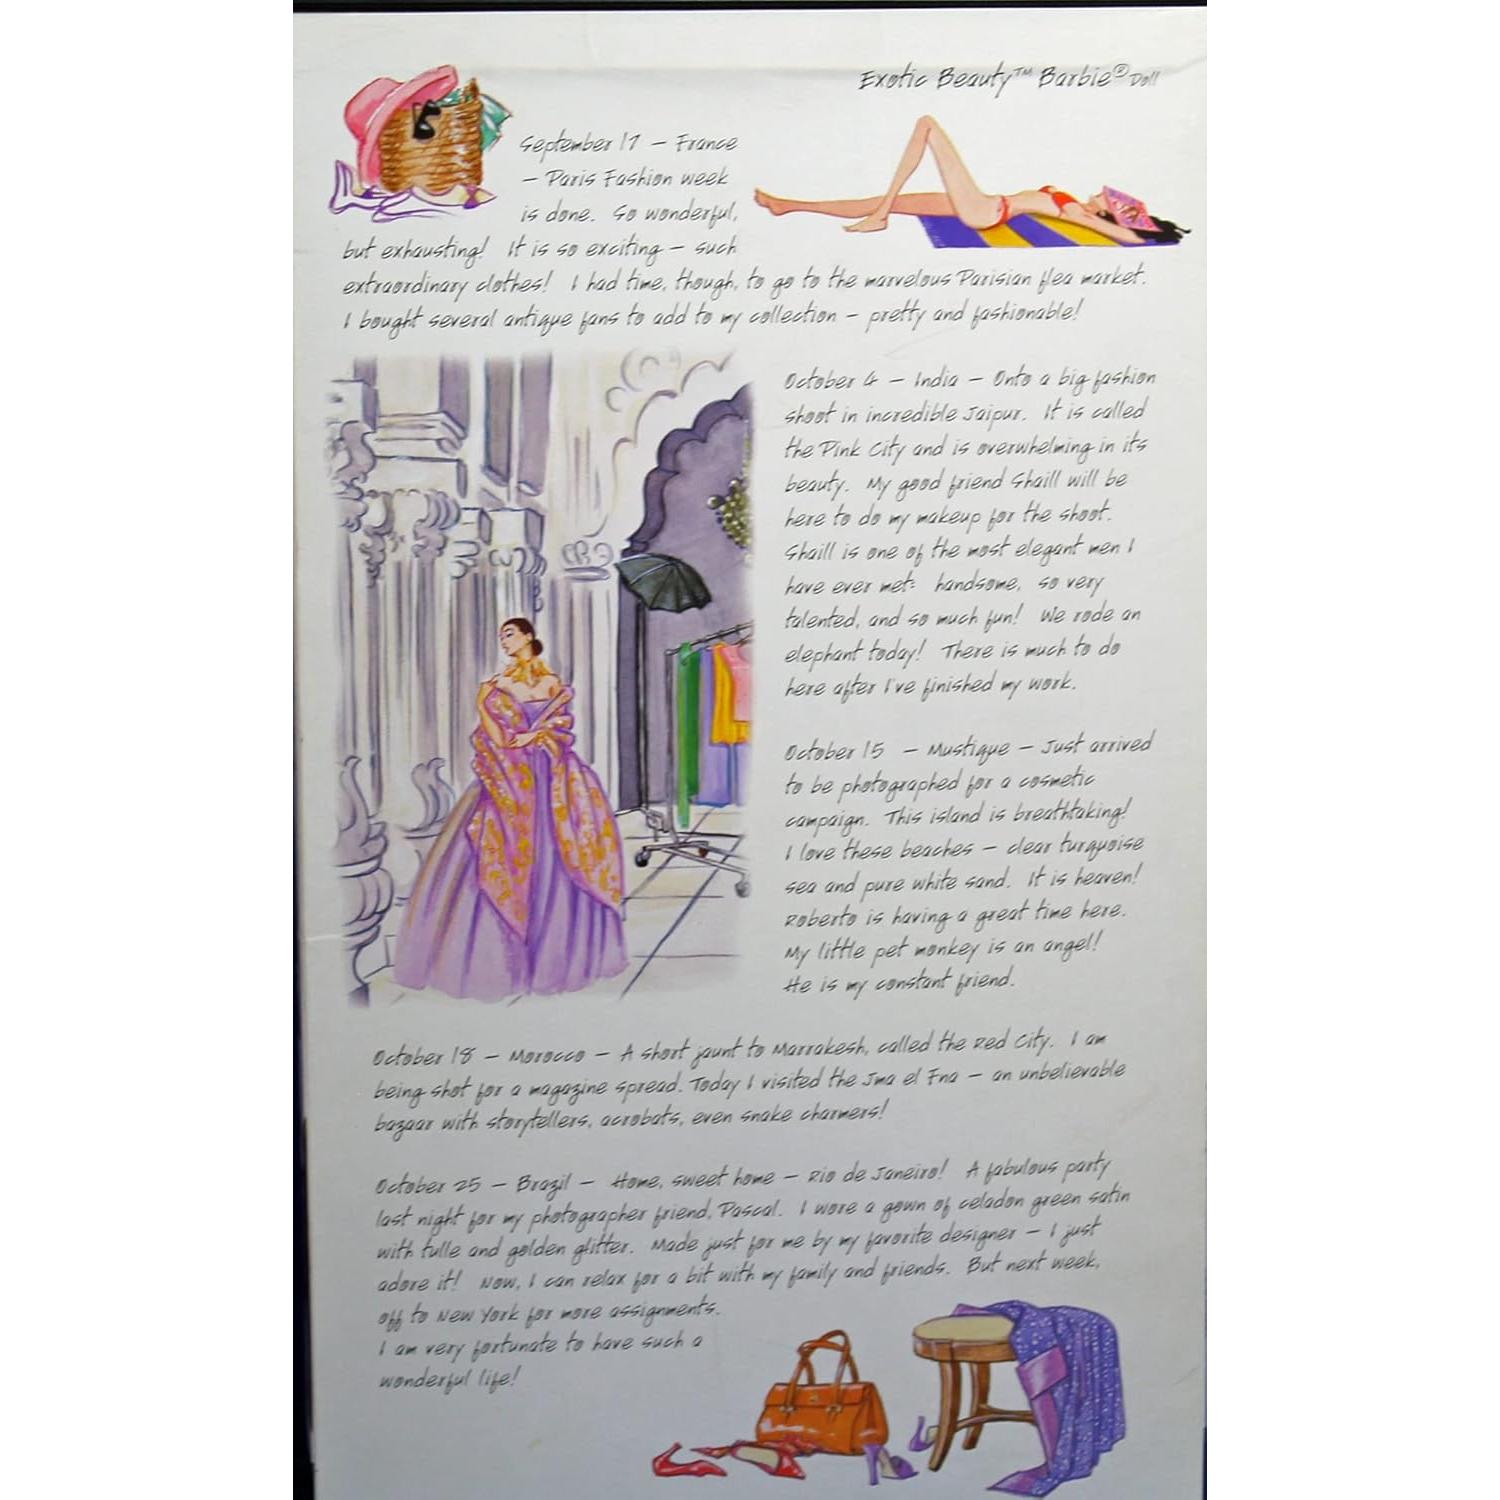 Exotic Beauty™ Barbie® Doll
September 17 – France
– Paris Fashion week
is done. So wonderful,
but exhausting! It is so exciting – such
extraordinary clothes! I had time, though, to go to the marvelous Parisian flea market.
I bought several antique fans to add to my collection – pretty and fashionable!
October 4 – India – Onto a big fashion
shoot in incredible Jaipur. It is called
the Pink City and is overwhelming in its
beauty. My good friend Shaill will be
here to do my makeup for the shoot.
Shaill is one of the most elegant men I
have ever met: handsome, so very
talented, and so much fun! We rode an
elephant today! There is much to do
here after I've finished my work.
October 15 – Mustique – Just arrived
to be photographed for a cosmetic
campaign. This island is breathtaking!
I love these beaches – clear turquoise
sea and pure white sand. It is heaven!
Roberto is having a great time here.
My little pet monkey is an angel!
He is my constant friend.
October 18 – Morocco – A short jaunt to Marrakesh, called the Red City. I am
being shot for a magazine spread. Today I visited the Jma el Fna – an unbelievable
bazaar with storytellers, acrobats, even snake charmers!
October 25 – Brazil – Home, sweet home – Rio de Janeiro! A fabulous party
last night for my photographer friend, Pascal. I wore a gown of celadon green satin
with tulle and golden glitter. Made just for me by my favorite designer – I just
adore it! Now, I can relax for a bit with my family and friends. But next week,
off to New York for more assignments.
I am very fortunate to have such a
wonderful life!